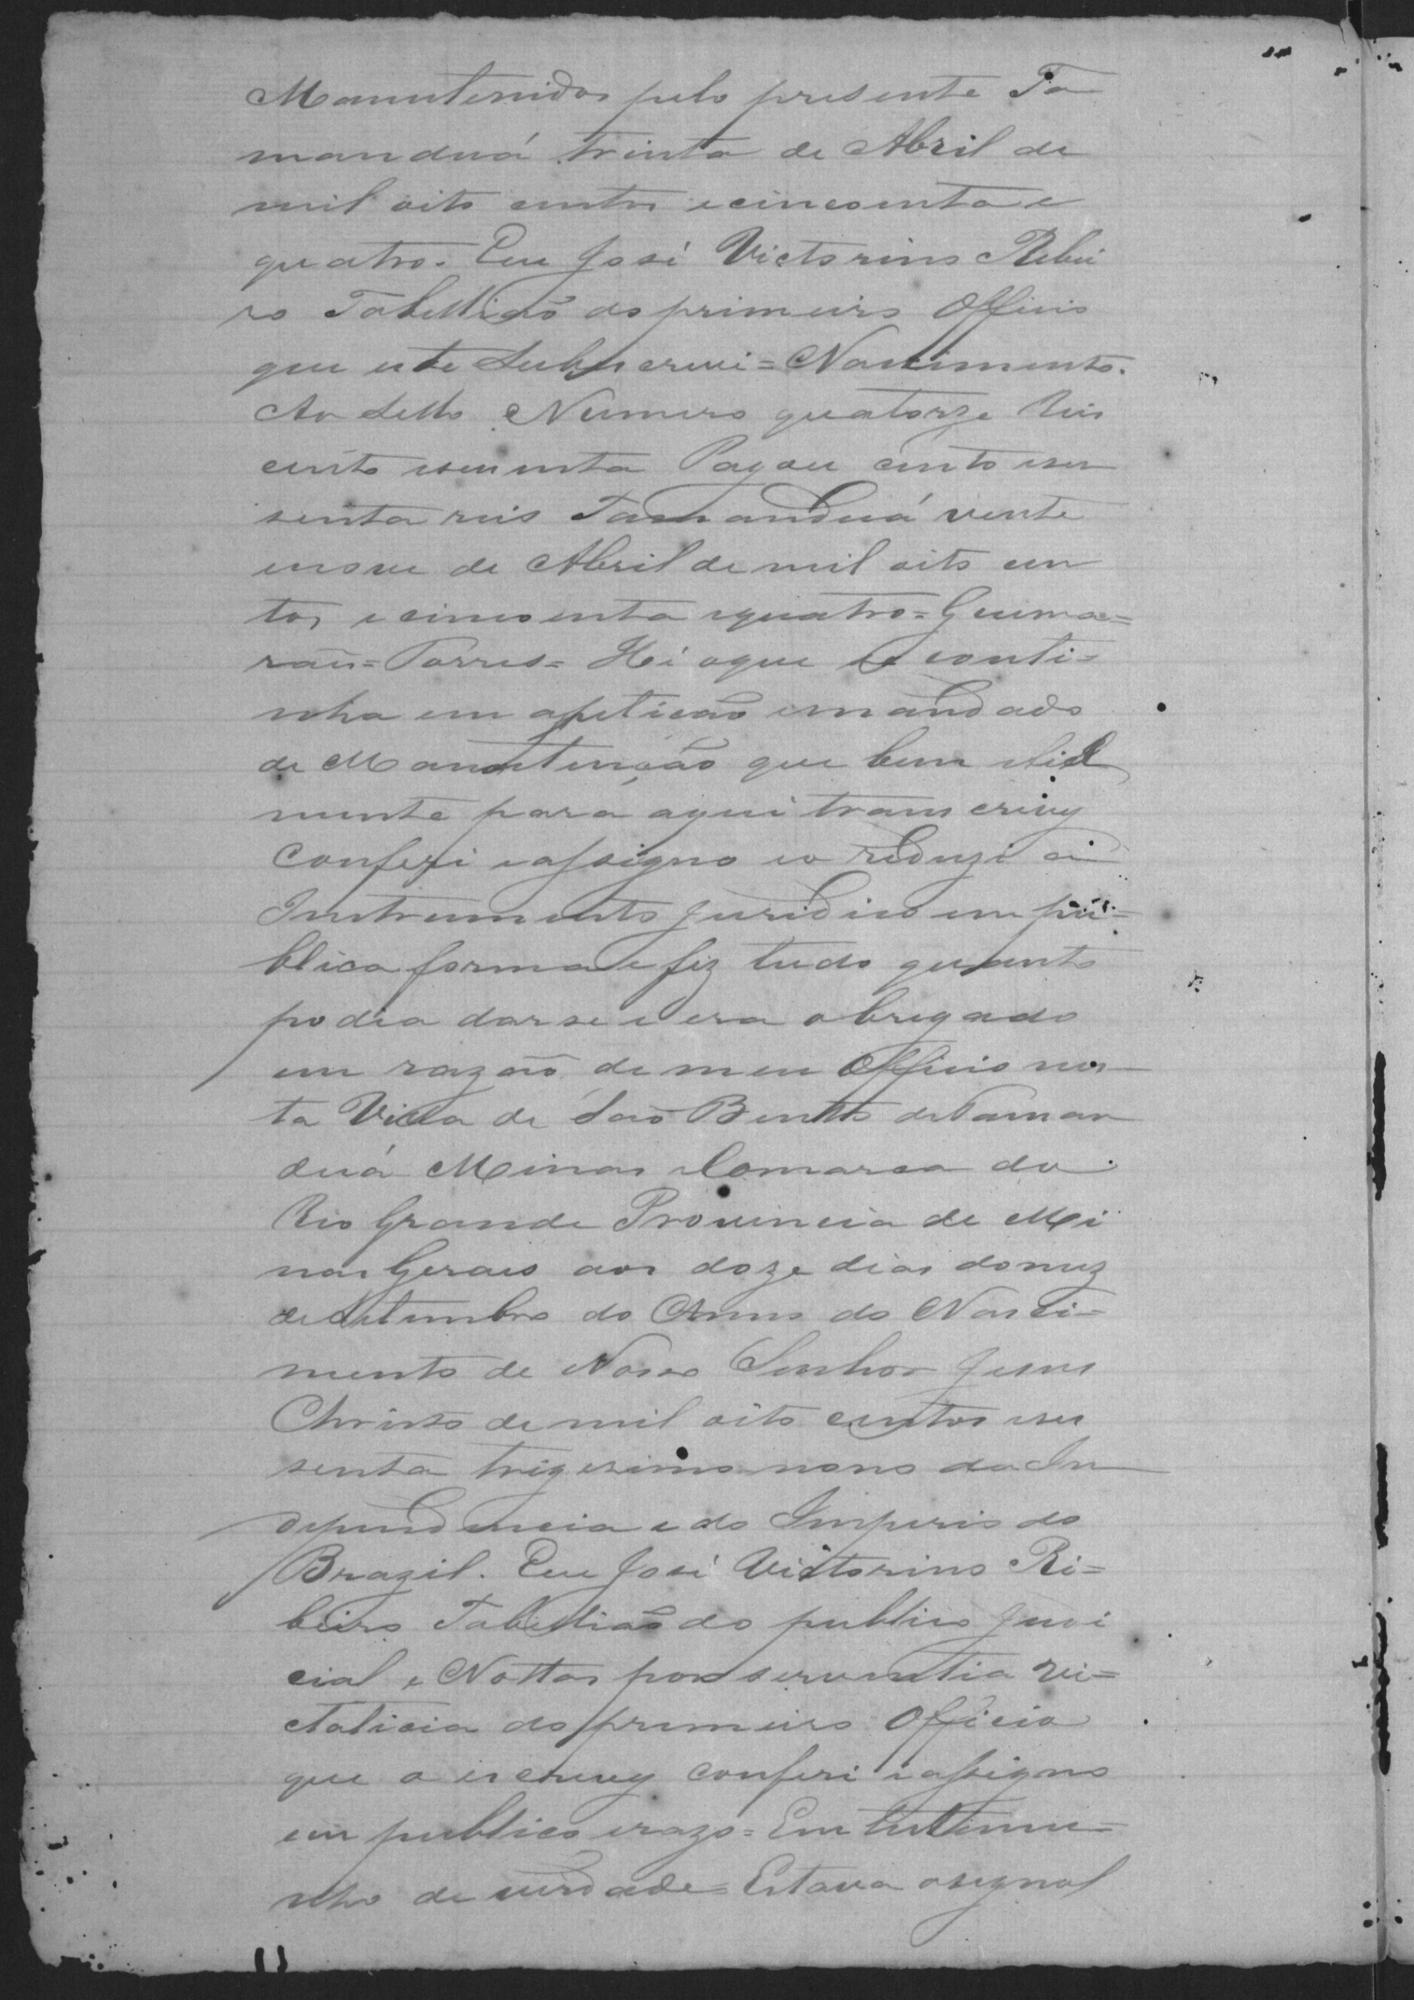 Manutenidos pelo presente Ta
manduá trinta de Abril de
mil oito centos e cincoenta e
quatro. Eu José Victorino Ribei
ro Tabellião do primeiro Officio
que este subscrevi = Nascimento.
Ao Sello Numero quatorze Reis
cento esecenta Pagou cento eses
senta reis Tamanduá vinte
enove de Abril de mil oito cen
tos e cincoenta equatro = Guima=
raes = Torres = Hé oque se conti=
nha em apetição emandado
de Manutenção que bem efiel
mente para aqui transcrevy
Conferi eassigno eo reduzi a
Instrumento juridico em pu=
blica forma e fiz tudo quanto
podia darse e era obrigado
em razão de meu Officio nes
ta Villa de São Bento de Taman
duá Minas Comarca do
Rio Grande Provincia de Mi
nas Gerais aos doze dias do mez
de Setembro do Anno do Nasci=
mento de Nosso Senhor Jesus
Christo de mil oito centos eses
senta trigesimo nono da In
dependencia e do Imperio do
Brazil. Eu José Victorino Ri=
beiro Tabellião do publico Judi
cial e Nottas por serventia Vi=
talicia do primeiro Officio
que o escrevy conferi eassigno
em publico erazo = Em testemu=
nho de verdade = Estava osignal